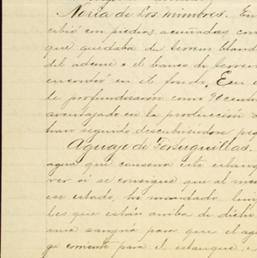 Noria de los mimbres. En
cibió con piedras acuñadas con
que quedaba de terreno bland
del ademe o el banco de terren
encontró en el fondo. En e
de profundización como 90 cent
aventajado en la producción d
han seguido descubriendo
Aguaje de Jesuguillas.
agua que conserva este estanq
ver si se consigue que al me
ese estado, he mandado lim
les que están arriba de dicho
una sangría para que el ag
ge corriente para el estanque,